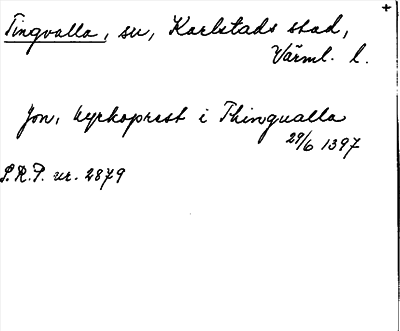 +
Tingvalla, su, Karlstads stad,
Värml. l.
Jon, kyrkoprest i Thingualla
29/6 1397
S.R.P. nr. 2879